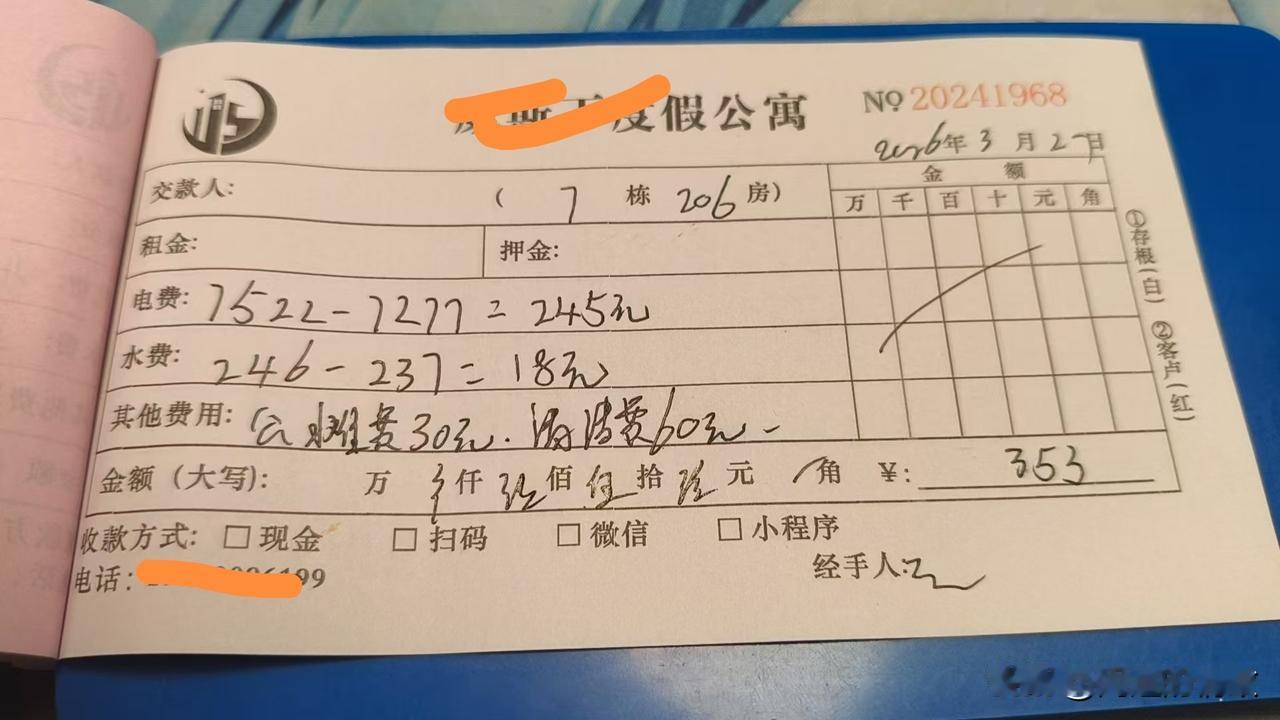 度假公寓
NO 20241968
2026年3月27日
交款人: ( 7 栋 206 房)
金额
万 千 百 十 元 角
租金: 押金:
电费: 7522-7277=245元
水费: 246-237=18元
其他费用: 公摊费30元.消费60元-
金额(大写): 万 仟 佰 伍拾 元 角 ¥: 353
收款方式: □现金 □扫码 □微信 □小程序
电话: 99
经手人:
①存根(白) ②客户(红)